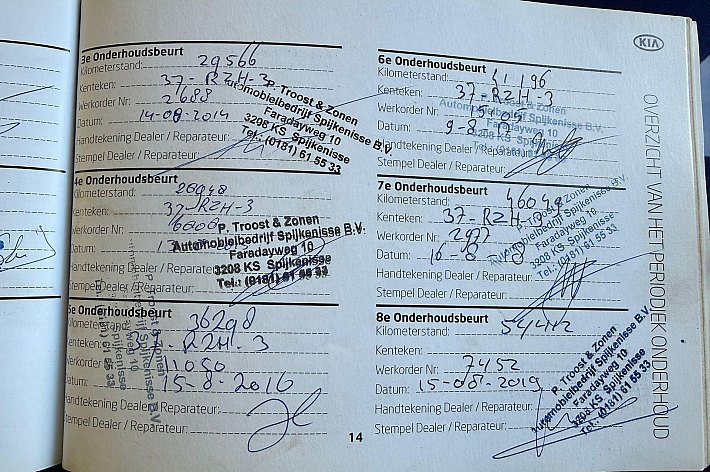 KIA
OVERZICHT VAN HET PERIODIEK ONDERHOUD
3e Onderhoudsbeurt
Kilometerstand: 29566
Kenteken: 37-RZH-3
Werkorder Nr: 2688
Datum: 14-08-2014
Handtekening Dealer / Reparateur:
Stempel Dealer / Reparateur:
P. Troost & Zonen
Automobielbedrijf Spijkenisse B.V.
Faradayweg 10
3208 KS Spijkenisse
Tel.: (0181) 61 55 33
4e Onderhoudsbeurt
Kilometerstand:
Kenteken: 37-RZH-3
Werkorder Nr:
Datum:
Handtekening Dealer / Reparateur
Stempel Dealer / Reparateur:
P. Troost & Zonen
Automobielbedrijf Spijkenisse B.V.
Faradayweg 10
3208 KS Spijkenisse
Tel.: (0181) 61 55 33
5e Onderhoudsbeurt
Kilometerstand: 36298
Kenteken: 37-RZH-3
Werkorder 11050
Datum: 15-8-2016
Handtekening Dealer / Reparateur:
Stempel Dealer / Reparateur:
6e Onderhoudsbeurt
Kilometerstand: 41196
Kenteken: 37-RZH-3
Werkorder Nr:
Datum: 9-8-
Handtekening Dealer / Reparateur:
Stempel Dealer / Reparateur:
P. Troost & Zonen
Automobielbedrijf Spijkenisse B.V.
Faradayweg 10
3208 KS Spijkenisse
Tel.: (0181) 61 55 33
7e Onderhoudsbeurt
Kilometerstand: 46049
Kenteken: 37-RZH-3
Werkorder Nr: 2977
Datum: 16-8-
Handtekening Dealer / Reparateur:
Stempel Dealer / Reparateur:
P. Troost & Zonen
Automobielbedrijf Spijkenisse B.V.
Faradayweg 10
3208 KS Spijkenisse
Tel.: (0181) 61 55 33
8e Onderhoudsbeurt
Kilometerstand:
Kenteken:
Werkorder Nr: 7452
Datum: 15-08-2019
Handtekening Dealer / Reparateur:
Stempel Dealer / Reparateur:
P. Troost & Zonen
Automobielbedrijf Spijkenisse B.V.
Faradayweg 10
3208 KS Spijkenisse
Tel.: (0181) 61 55 33
14